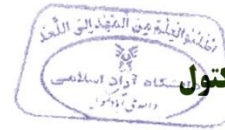 اطلبوا العلم من المهد إلی اللحد
دانشگاه آزاد اسلامی
کتول